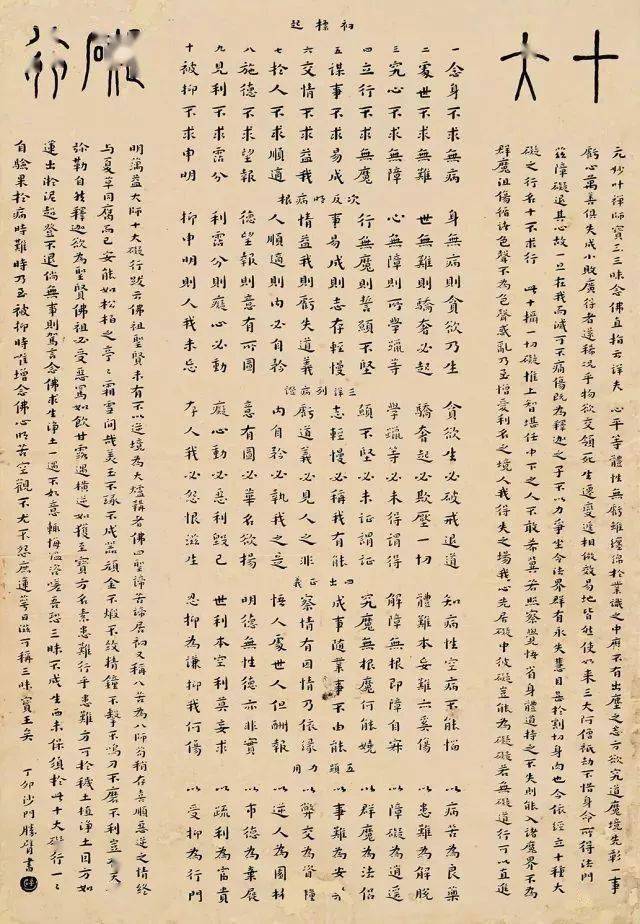 十大礙行
元妙叶禪師寶王三昧念佛直指云詳夫　心平等體性無虧雖纏綿於業識之中罔不有出塵之志方欲究道魔境先彰一事
虧心萬善俱失成小敗廣得者還稀况乎物欲交傾死生遷變遞相倣效易地皆然使如來三大阿僧祇劫不惜身命所得法門
茲障礙退其心故一旦在我而滅可不痛傷既為釋迦之子不以力爭坐令法界群有永失慧目甚於割切身肉也今依經立十種大
礙之行名十不求行　此十攝一切礙惟上智堪任中下之人不敢希冀若照察覺悟省身體道持之不失則能入諸魔界不為
群魔沮傷循諸色聲不為色聲惑亂乃至憎愛利名之境人我得失之場我心先居礙中彼礙豈能為礙礙若無礙道行可以直進
初標起
一念身不求無病
二處世不求無難
三究心不求無障
四立行不求無魔
五謀事不求易成
六交情不求益我
七於人不求順適
八施德不求望報
九見利不求霑分
十被抑不求申明
次反時病根
身無病則貪欲乃生
世無難則驕奢必起
心無障則所學躐等
行無魔則誓願不堅
事易成則志存輕慢
情益我則虧失道義
人順適則內必自矜
德望報則意有所圖
利霑分則癡心必動
抑申明則人我未忘
三詳列病證
貪欲生必破戒退道
驕奢起必欺壓一切
學躐等必未得謂得
願不堅必未證謂證
志輕慢必稱我有能
虧道義必見人之非
內自矜必執我之是
意有圖必華名欲揚
癡心動必惡利毀己
存人我必怨恨滋生
四出正義
知病性空病不能惱
體難本妄難亦奚傷
解障無根即障自寂
究魔無根魔何能嬈
成事隨業事不由能
察情有因情乃依緣
悟人處世人但酬報
明德無性德亦非實
世利本空利莫妄求
忍抑為謙抑我何傷
五顯力用
以病苦為良藥
以患難為解脫
以障礙為逍遙
以群魔為法侶
以事難為安樂
以弊交為資糧
以逆人為園林
以市德為棄屣
以疏利為富貴
以受抑為行門
明蕅益大師十大礙行跋云佛祖聖賢未有不以逆境為大爐鞴者佛四聖諦苦諦居初又稱八苦為八師苟稍存喜順惡逆之情終
與夏草同腐而已安能如松柏之亭亭霜雪間哉美玉不琢不成器頑金不煅不致精鐘不擊不鳴刀不磨不利豈有天
彌勒自然釋迦欲為聖賢佛祖必受惡罵如飲甘露遇橫逆如獲至寶方名素患難行乎患難方可於穢土植淨土因方如
蓮出淤泥超登不退倘無事則篤言念佛求生淨土一遇不如意輒咨嗟喜怒三昧不成生西未保須於此十大礙行一一
自驗果於病時難時乃至被抑時惟增念佛心明苦空觀不尤不怨庶蓮萼日滋可稱三昧寶王矣
丁卯沙門勝臂書